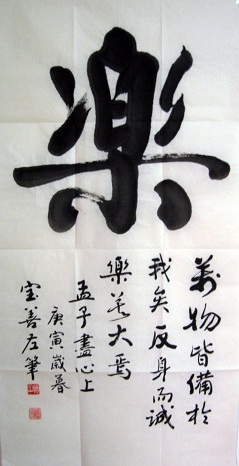 楽
萬物皆備於
我矣反身而誠
樂莫大焉
孟子盡心上
庚寅歲暮
宝善左筆